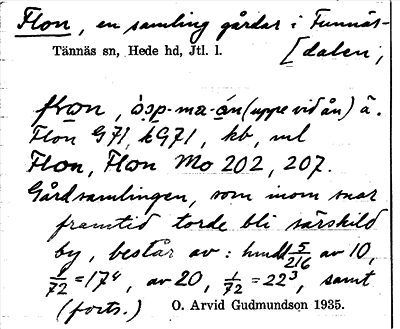 Flon, en samling gårdar i Funnäs-
[dalen,
Tännäs sn, Hede hd, Jtl. l.
flon, åsp-ma-ån (uppe vid ån) ä.
Flon G71, kG71, kb, ml
Flon, Flon Mo 202, 207.
Gårdsamlingen, som inom snar
framtid torde bli särskild
by, består av: hmdl 5/216 av 10,
1/72 = 17⁴, av 20, 1/72 = 22³, samt
(forts.) O. Arvid Gudmundson 1935.